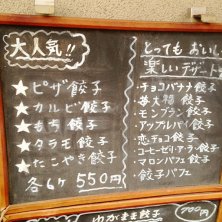 大人気!!
★ピザ餃子
★カルビ餃子
★もち餃子
★タラモ餃子
★たこやき餃子
各6ヶ 550円
とってもおいしい
楽しいデザート
・チョコバナナ餃子
・苺大福餃子
・モンブラン餃子
・アップルパイ餃子
・恋チョコ餃子
・コーヒーゼリーアラモード餃子
・マロンパフェ餃子
・餃子パフェ
わがまま餃子
700円